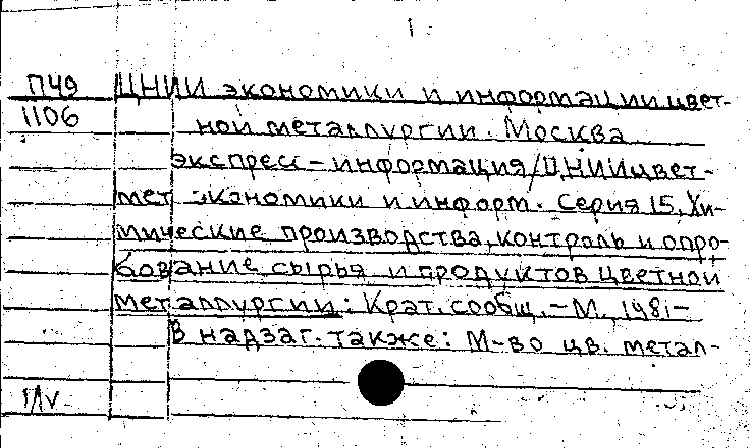 1.
П49 ЦНИИ экономики и информации цвет-
1106 ной металлургии. Москва
Экспресс-информация/ЦНИИцвет-
мет экономики и информ. Серия 15, Хи-
мические производства, контроль и опро-
бование сырья и продуктов цветной
металлургии: Крат. сообщ. - М., 1981-
В надзаг. также: М-во цв. метал-